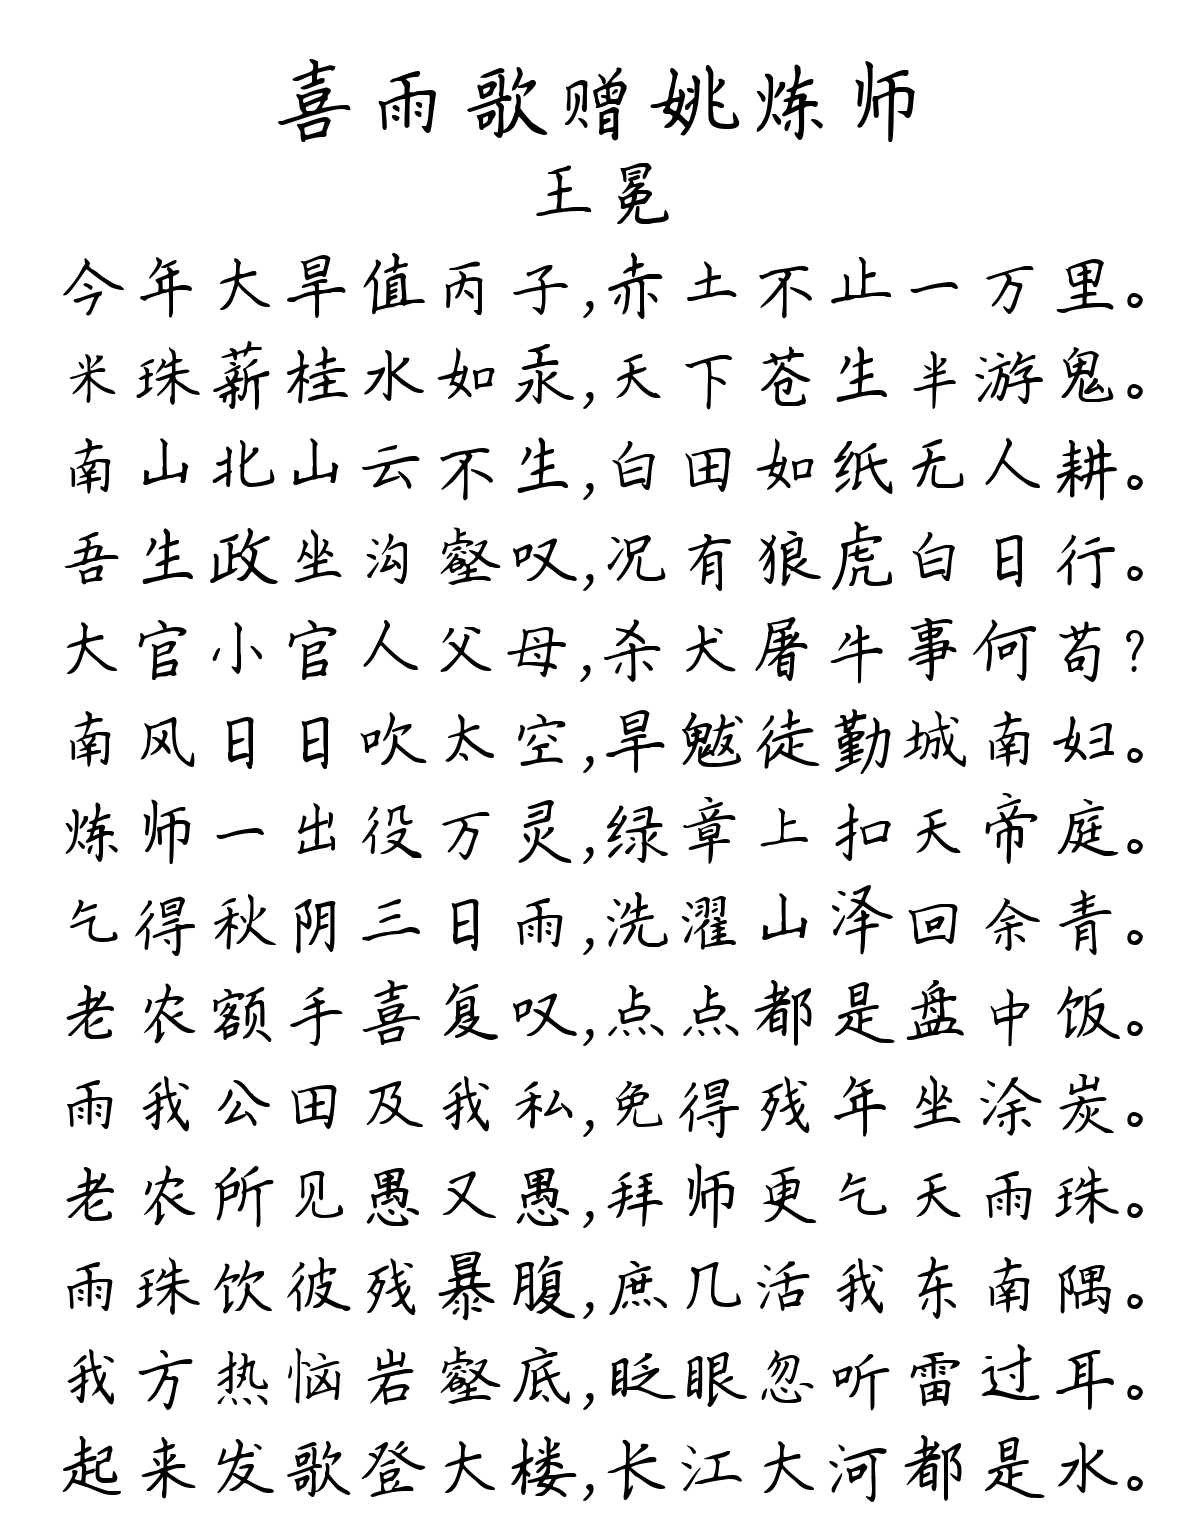 喜雨歌赠姚炼师
王冕
今年大旱值丙子,赤土不止一万里。
米珠薪桂水如汞,天下苍生半游鬼。
南山北山云不生,白田如纸无人耕。
吾生政坐沟壑叹,况有狼虎白日行。
大官小官人父母,杀犬屠牛事何苟?
南风日日吹太空,旱魃徒勤城南妇。
炼师一出役万灵,绿章上扣天帝庭。
乞得秋阴三日雨,洗濯山泽回余青。
老农额手喜复叹,点点都是盘中饭。
雨我公田及我私,免得残年坐涂炭。
老农所见愚又愚,拜师更乞天雨珠。
雨珠饮彼残暴腹,庶几活我东南隅。
我方热恼岩壑底,眨眼忽听雷过耳。
起来发歌登大楼,长江大河都是水。